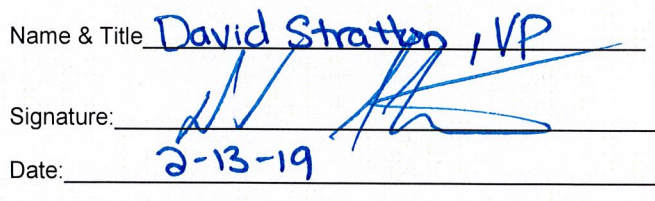 Name & Title David Stratton, VP
Signature:
Date: 2-13-19